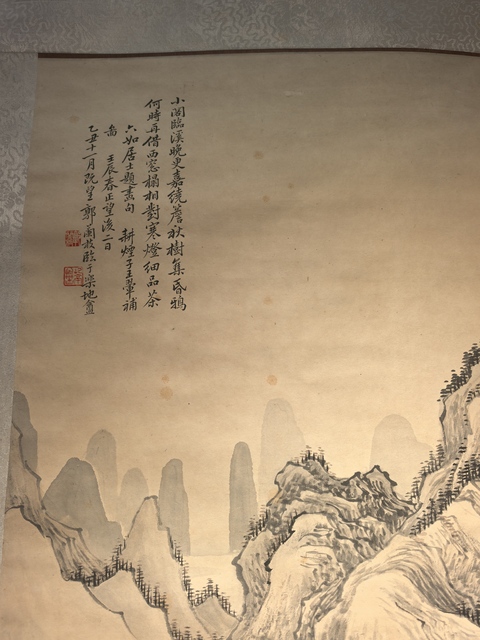 小閣臨溪晚更嘉繞簷秋樹集昏鴉
何時再借西窓榻相對寒燈細品茶
六如居士題畫句 耕煙子王翬補
圖 壬辰春正望後二日
乙丑十一月既望郭蘭枝臨于樂地盦